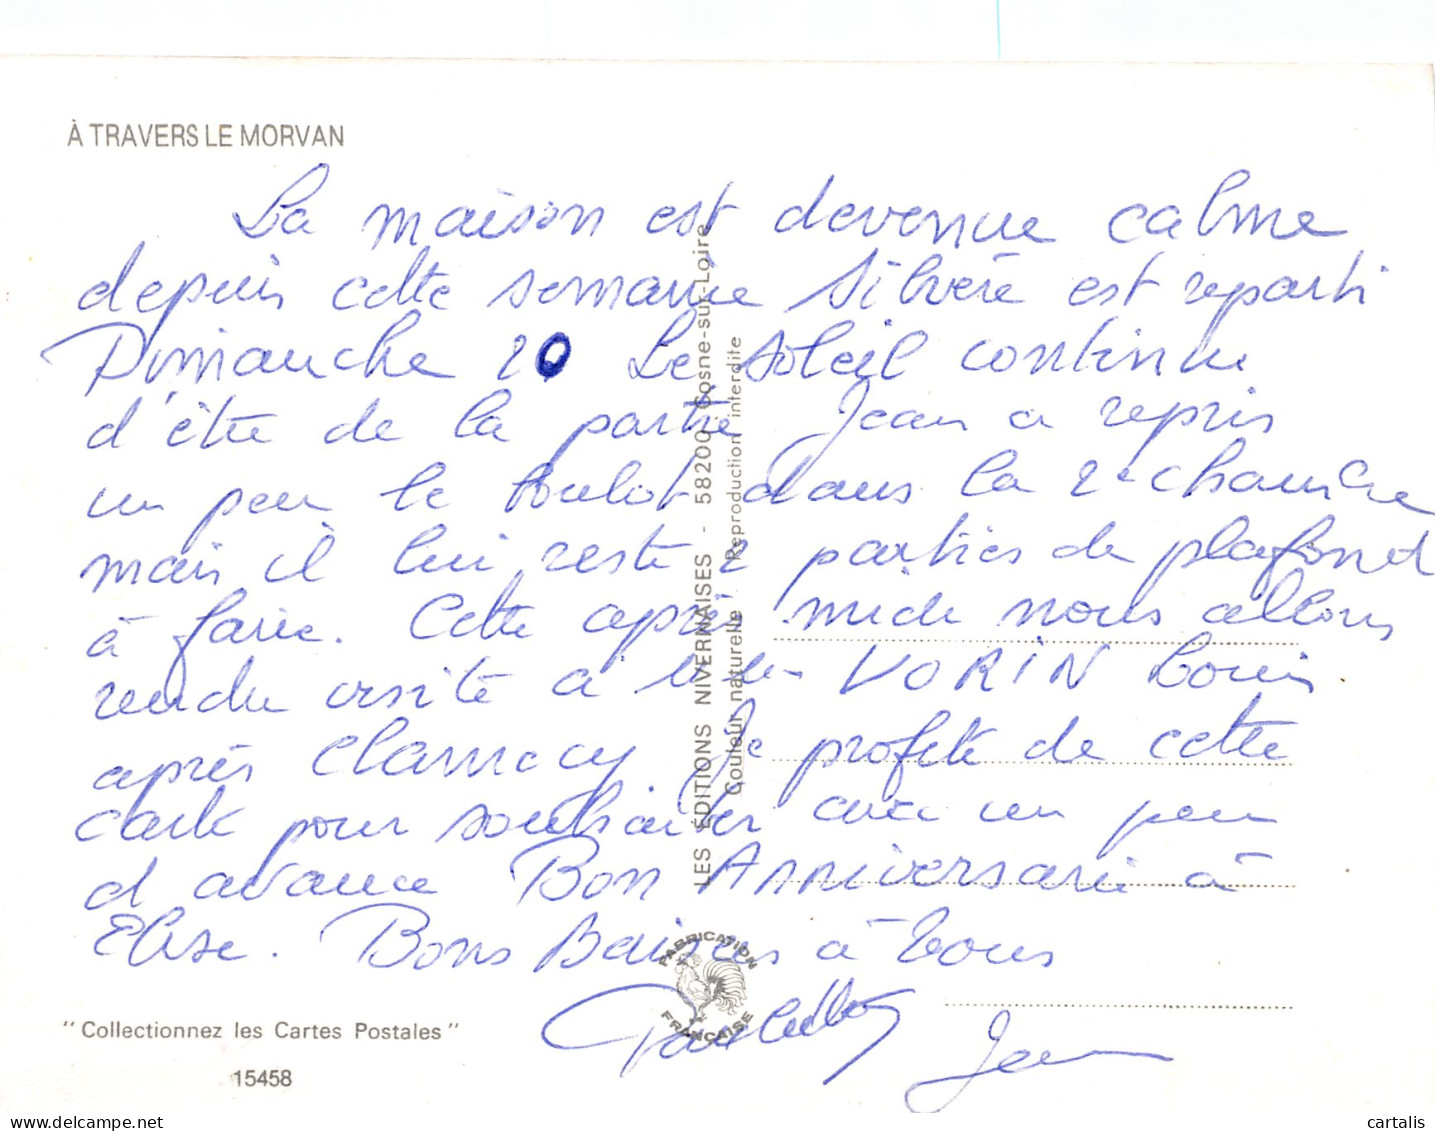 À TRAVERS LE MORVAN
La maison est devenue calme
depuis cette semaine Silvère est reparti
Dimanche 20 Le soleil continue
d'être de la partie Jean a repris
un peu le boulot dans la 2e chambre
mais il lui reste 2 parties de plafond
à faire. Cette après midi nous allons
rendre visite à VORIN Louis
après Clamecy. Je profite de cette
carte pour souhaiter avec un peu
d avance Bon Anniversaire à
Elise. Bons Baisers à tous
Jean
LES ÉDITIONS NIVERNAISES - 58200 Cosne-sur-Loire
Couleur naturelle Reproduction interdite
FABRICATION FRANÇAISE
"Collectionnez les Cartes Postales"
15458
cartalis